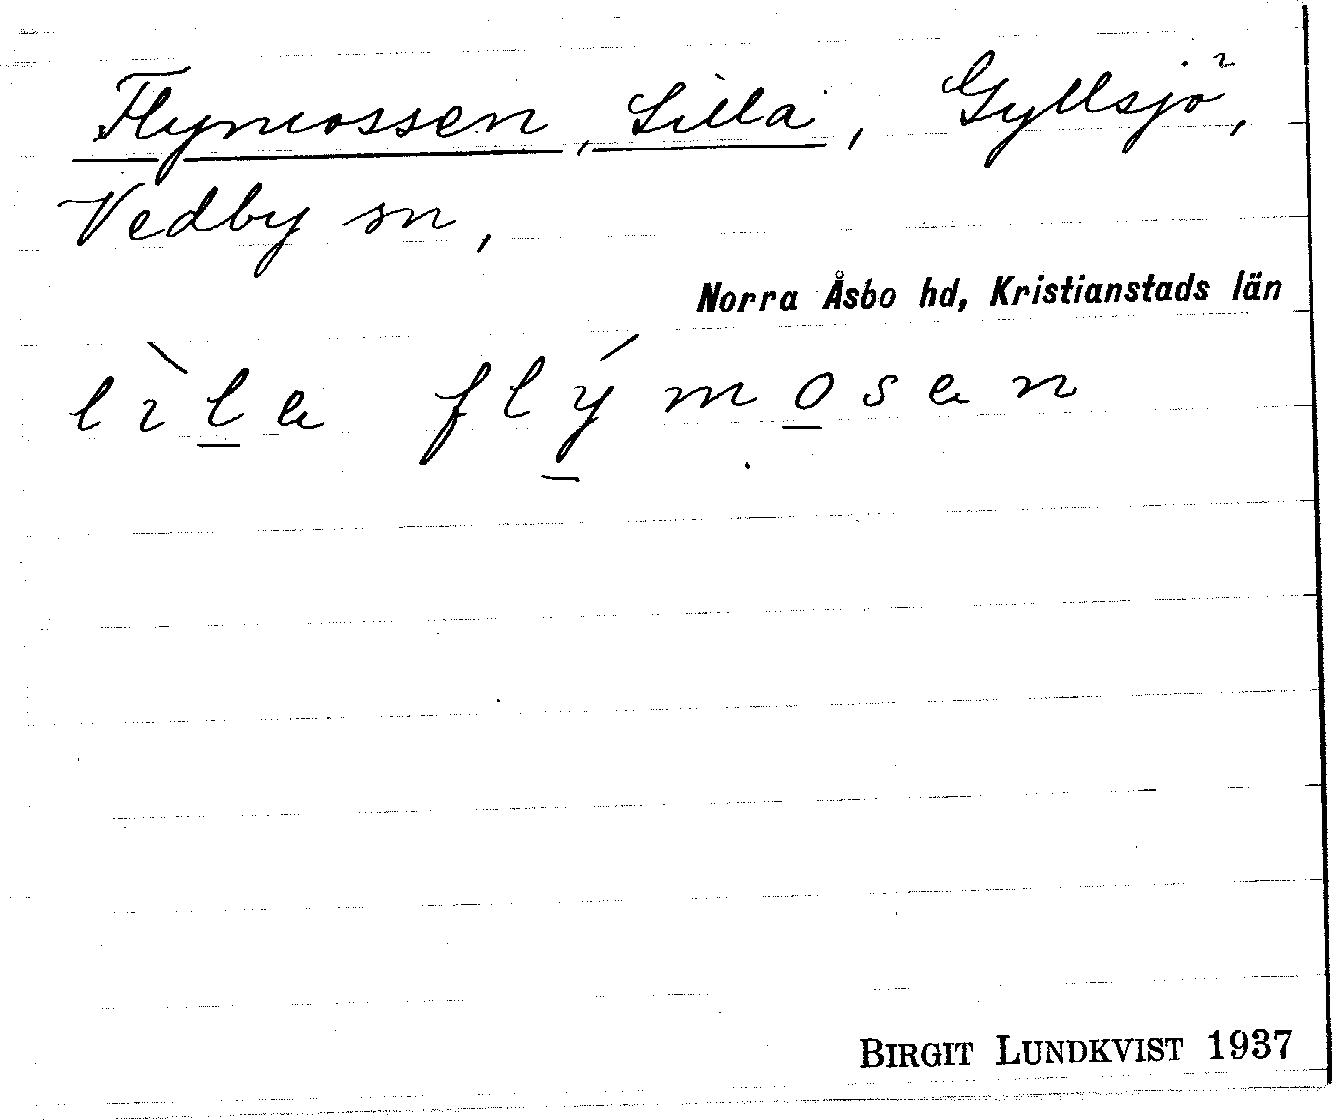 Flymossen, Lilla, Gyllsjö,
Vedby sn,
Norra Åsbo hd, Kristianstads län
lìla flýmosan
BIRGIT LUNDKVIST 1937